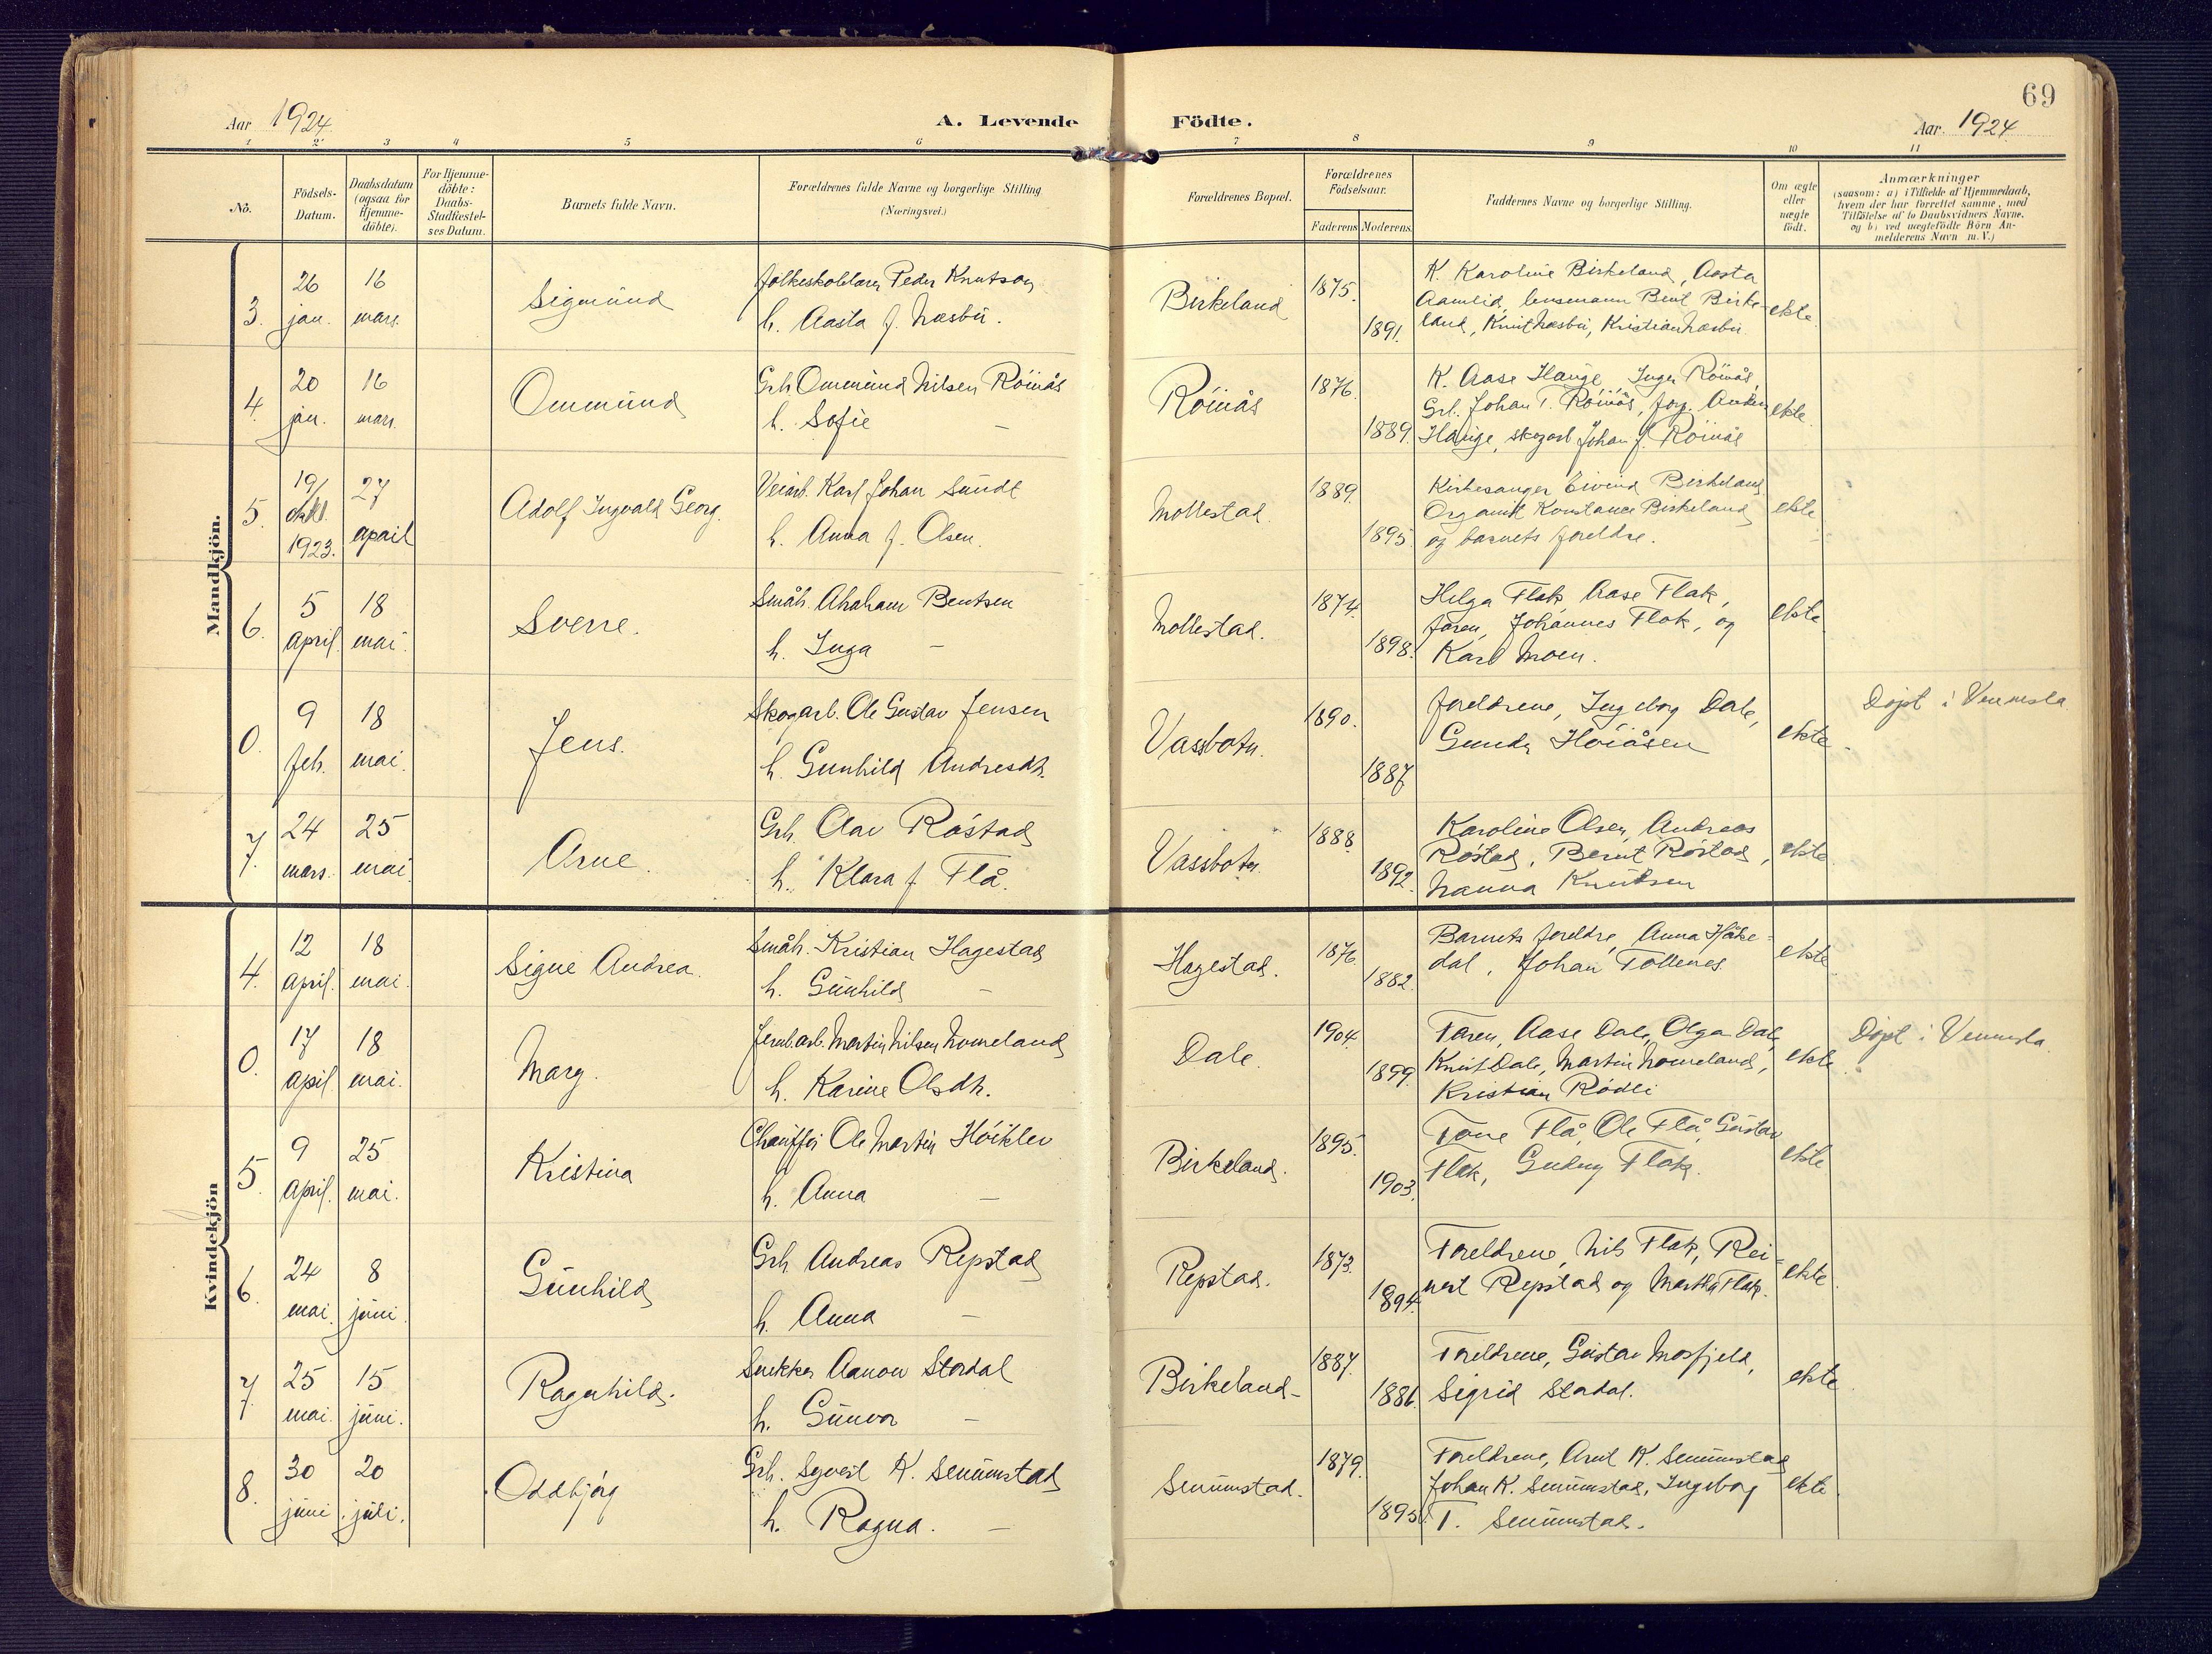 69
Aar 1924
A. Levende Födte.
Aar. 1924
1 2 3 4 5 6 7 8 9 10 11
No.
Födsels-Datum.
Daabsdatum (ogsaa for Hjemme-döbte).
For Hjemme-döbte: Daabs-Stadfæstel-ses Datum.
Barnets fulde Navn.
Forældrenes fulde Navne og borgerlige Stilling (Næringsvei.)
Forældrenes Bopæl.
Forældrenes Födselsaar.
Faderens Moderens.
Faddernes Navne og borgerlige Stilling.
Om ægte eller uægte födt.
Anmærkninger
(saasom: a) i Tilfælde af Hjemmedaab,
hvem der har forrettet samme, med
Tilföielse af to Daabsvidners Navne.
og b) ved uægtefödte Börn An-
melderens Navn m.V.)
Mandkjön.
3. 26 jan. 16 mars. Sigmund
Folkeskolelærer Peder Knutson
h. Aasta f. Næsbü.
Birkeland 1875. 1891.
K. Karoline Birkeland, Aasta
Aamlid, lensmann Beint Birke-
land, Knut Næsbü, Kristian Næsbü
ekte
4. 20 jan. 16 mars. Ommund
Grb. Ommund Nilsen Röinås
h. Sofie —
Röinås 1876. 1889.
K. Aase Hauge, Inger Röinås,
Grb. Johan T. Röinås, forp. Anders
Hauge, skogarb Johan J. Röinås
ekte.
5. 19/ okt. 1923. 27 april Adolf Ingvald Georg.
Veiarb. Karl Johan Sundt
h. Anna f. Olsen.
Mollestad. 1889. 1895.
Kirkesanger Eivind Birkeland
Organist Konstance Birkeland
og barnets foreldre.
ekte
6. 5 april. 18 mai. Sverre.
Småb. Abraham Bentsen
h. Inga —
Mollestad. 1874. 1898.
Helga Flak, Aase Flak,
faren, Johannes Flak, og
Karl Moen.
ekte
0. 9 feb. 18 mai. Jens.
Skogarb. Ole Gustav Jensen
h. Gunhild Andresdt.
Vassbotn. 1890. 1887
Foreldrene, Ingeborg Dale,
Gunda Höiåsen
ekte.
Döpt i Vennesla
7. 24 mars. 25 mai. Arne.
Grb. Olav Röstad
h. Klara f. Flå.
Vassbotn. 1888. 1892.
Karoline Olsen, Andreas
Röstad, Bernt Röstad,
Nanna Knutsen
ekte
Kvindekjön
4. 12 april. 18 mai. Signe Andrea.
Småb. Kristian Hagestad
h. Gunhild —
Hagestad. 1876. 1882.
Barnets foreldre, Anna Håke-
dal, Johan Tollenes.
ekte
0. 17 april 18 mai. Marg.
Jernb.arb. Martin Nilsen Momeland
h. Karine Olsdt.
Dale. 1904. 1899.
Faren, Aase Dale, Olga Dale,
Knut Dale, Martin Momeland,
Kristian Rödli
ekte.
Döpt i Vennesla.
5. 9 april. 25 mai. Kristina
Chaufför Ole Martin Höiklev
h. Anna —
Birkeland. 1895. 1903.
Tone Flå, Ole Flå, Gustav
Flak, Gudny Flak.
ekte
6. 24 mai. 8 juni. Gunhild
Grb Andreas Repstad
h. Anna —
Repstad. 1873. 1894.
Foreldrene, Nils Flak, Rei-
nert Repstad og Martha Flak.
ekte
7. 25 mai. 15 juni. Ragnhild.
Snekker Aanon Stordal
h. Gunvor —
Birkeland. 1887. 1886.
Foreldrene, Gustav Mosfjeld,
Sigrid Stordal.
ekte
8. 30 juni. 20 juli. Oddbjörg
Grb. Syvert K. Senumstad
h. Ragna. —
Senumstad. 1879. 1895.
Foreldrene, Arnt K. Senumstad
Johan K. Senumstad, Ingeborg
T. Senumstad.
ekte